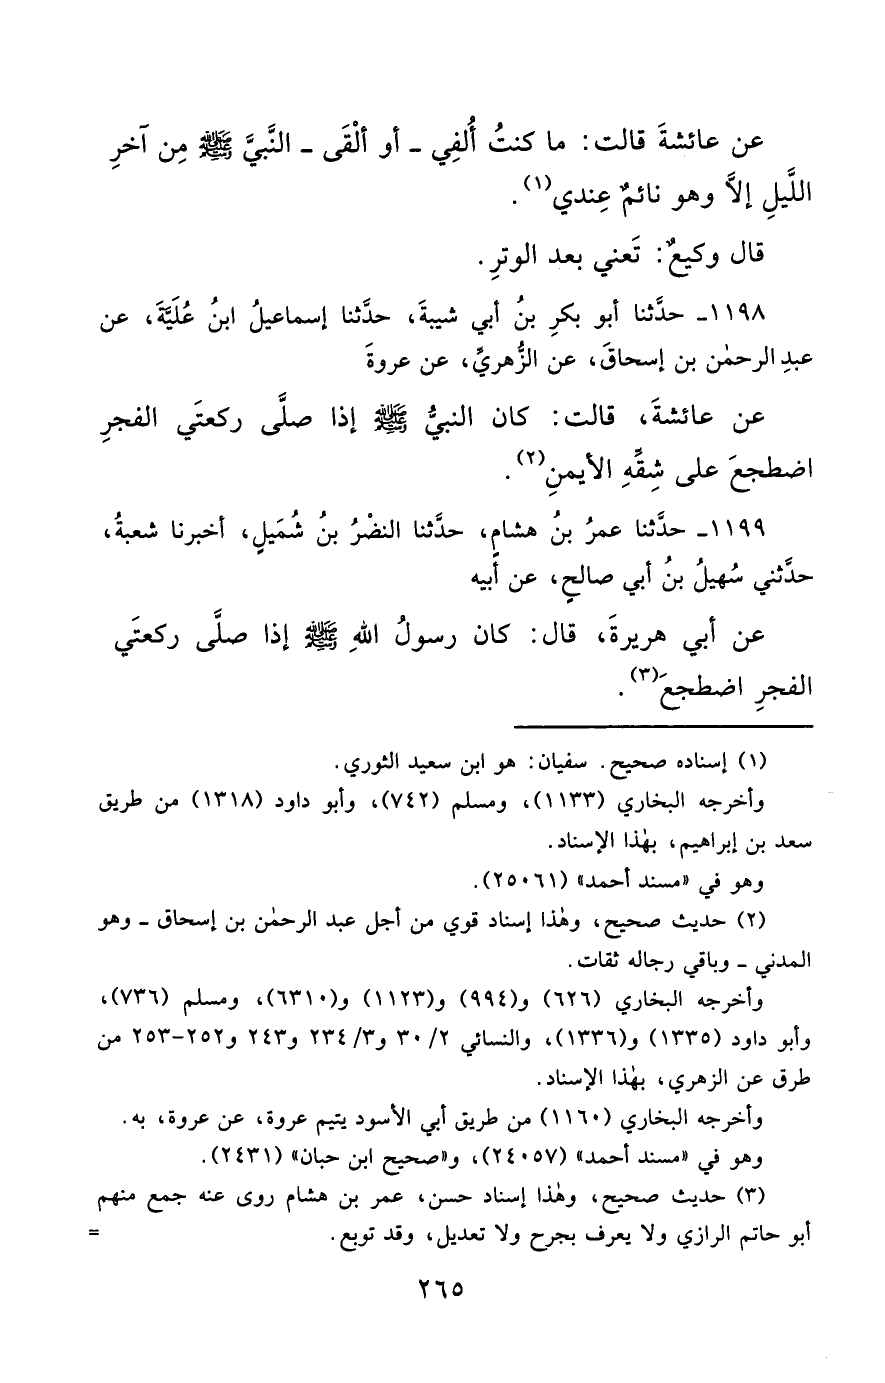 عن عائشةَ قالت: ما كنتُ أُلفِي ـ أو ألْقَى ـ النَّبيَّ ﷺ مِن آخرِ
اللَّيلِ إلاَّ وهو نائمٌ عِندي(١).
قال وكيعٌ: تَعني بعد الوترِ.
١١٩٨ـ حدَّثنا أبو بكرِ بنُ أبي شيبةَ، حدَّثنا إسماعيلُ ابنُ عُلَيَّةَ، عن
عبدِ الرحمٰن بن إسحاقَ، عن الزُّهريِّ، عن عروةَ
عن عائشةَ، قالت: كان النبيُّ ﷺ إذا صلَّى ركعتَي الفجرِ
اضطجعَ على شِقِّهِ الأيمنِ(٢).
١١٩٩ـ حدَّثنا عمرُ بنُ هشامٍ، حدَّثنا النضْرُ بنُ شُمَيلٍ، أخبرنا شعبةُ،
حدَّثني سُهيلُ بنُ أبي صالحٍ، عن أبيه
عن أبي هريرةَ، قال: كان رسولُ اللهِ ﷺ إذا صلَّى ركعتَي
الفجرِ اضطجعَ(٣).
(١) إسناده صحيح. سفيان: هو ابن سعيد الثوري.
وأخرجه البخاري (١١٣٣)، ومسلم (٧٤٢)، وأبو داود (١٣١٨) من طريق
سعد بن إبراهيم، بهٰذا الإسناد.
وهو في «مسند أحمد» (٢٥٠٦١).
(٢) حديث صحيح، وهٰذا إسناد قوي من أجل عبد الرحمٰن بن إسحاق ـ وهو
المدني ـ وباقي رجاله ثقات.
وأخرجه البخاري (٦٢٦) و(٩٩٤) و(١١٢٣) و(٦٣١٠)، ومسلم (٧٣٦)،
وأبو داود (١٣٣٥) و(١٣٣٦)، والنسائي ٢/ ٣٠ و٣/ ٢٣٤ و٢٤٣ و٢٥٢-٢٥٣ من
طرق عن الزهري، بهٰذا الإسناد.
وأخرجه البخاري (١١٦٠) من طريق أبي الأسود يتيم عروة، عن عروة، به.
وهو في «مسند أحمد» (٢٤٠٥٧)، و«صحيح ابن حبان» (٢٤٣١).
(٣) حديث صحيح، وهٰذا إسناد حسن، عمر بن هشام روى عنه جمع منهم
أبو حاتم الرازي ولا يعرف بجرح ولا تعديل، وقد توبع. =
٢٦٥